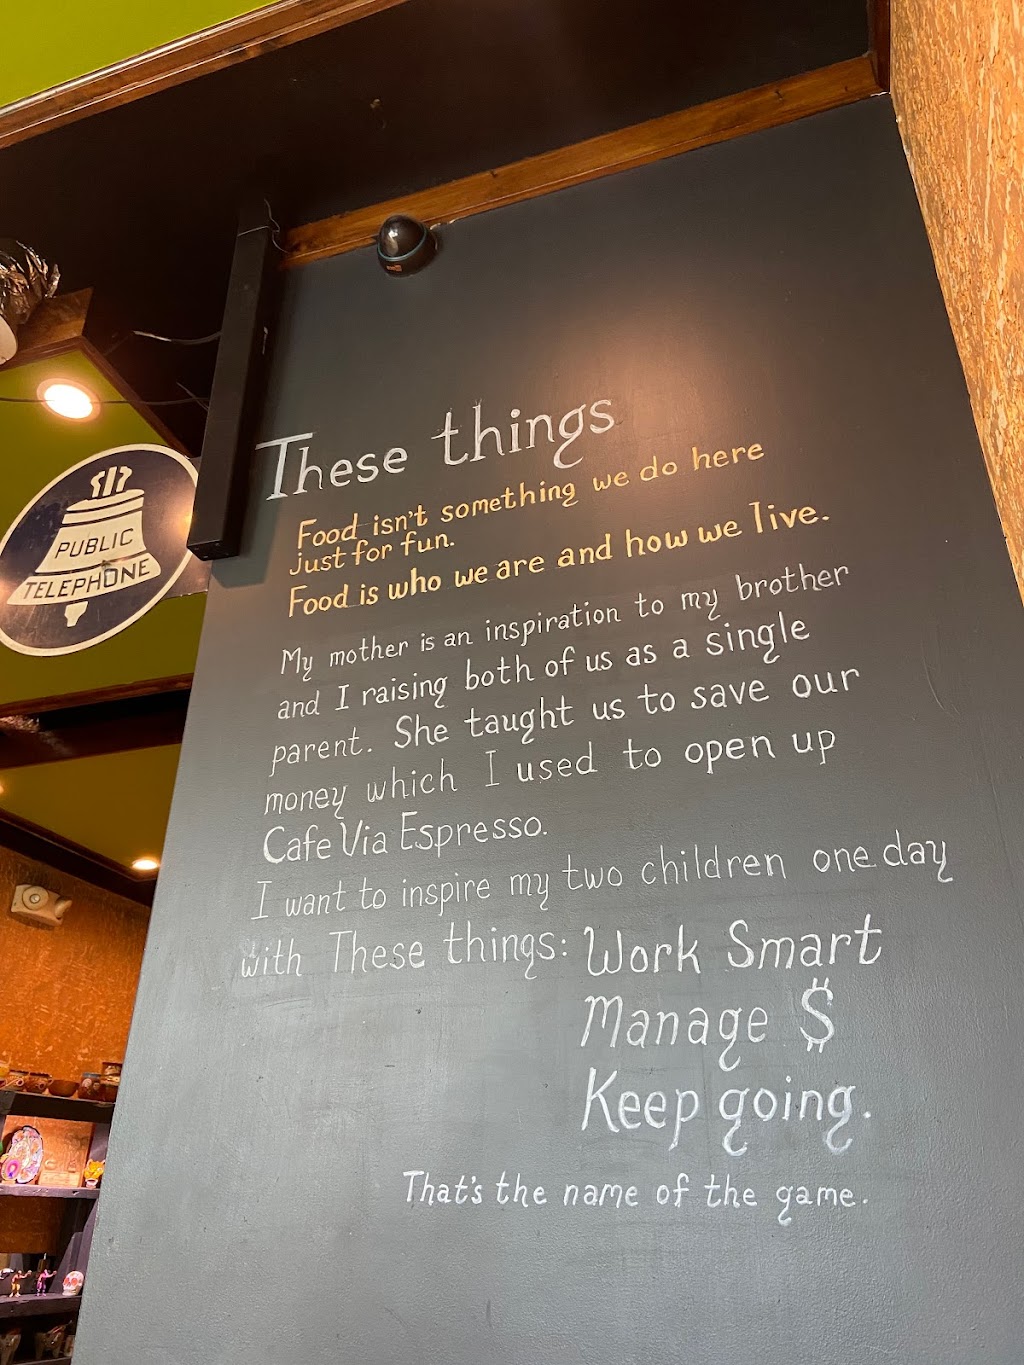 These things
Food isn't something we do here
just for fun.
Food is who we are and how we live.
My mother is an inspiration to my brother
and I raising both of us as a single
parent. She taught us to save our
money which I used to open up
Cafe Via Espresso.
I want to inspire my two children one day
with These things: Work Smart
Manage $
Keep going.
That's the name of the game.
PUBLIC
TELEPHONE